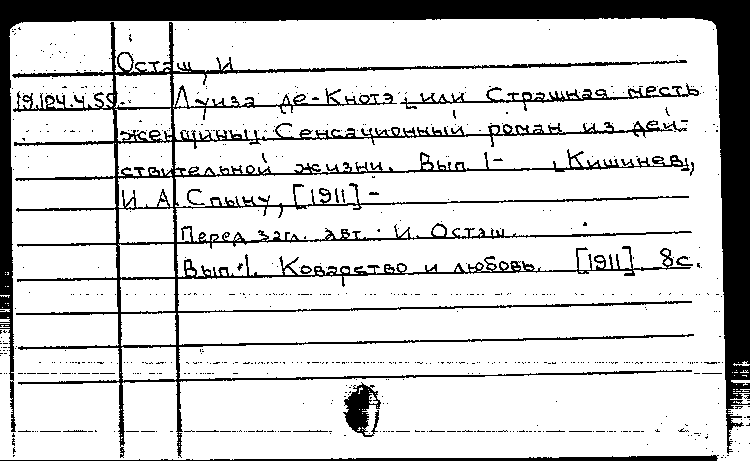 Осташ, И
19.124.4.59. Луиза де-Кнотэ, или Страшная месть
женщины. Сенсационный роман из дей-
ствительной жизни. Вып. 1- [Кишинев],
И. А. Спыну, [1911] -
Перед загл. авт.: И. Осташ.
Вып. 1. Коварство и любовь. [1911]. 8с.